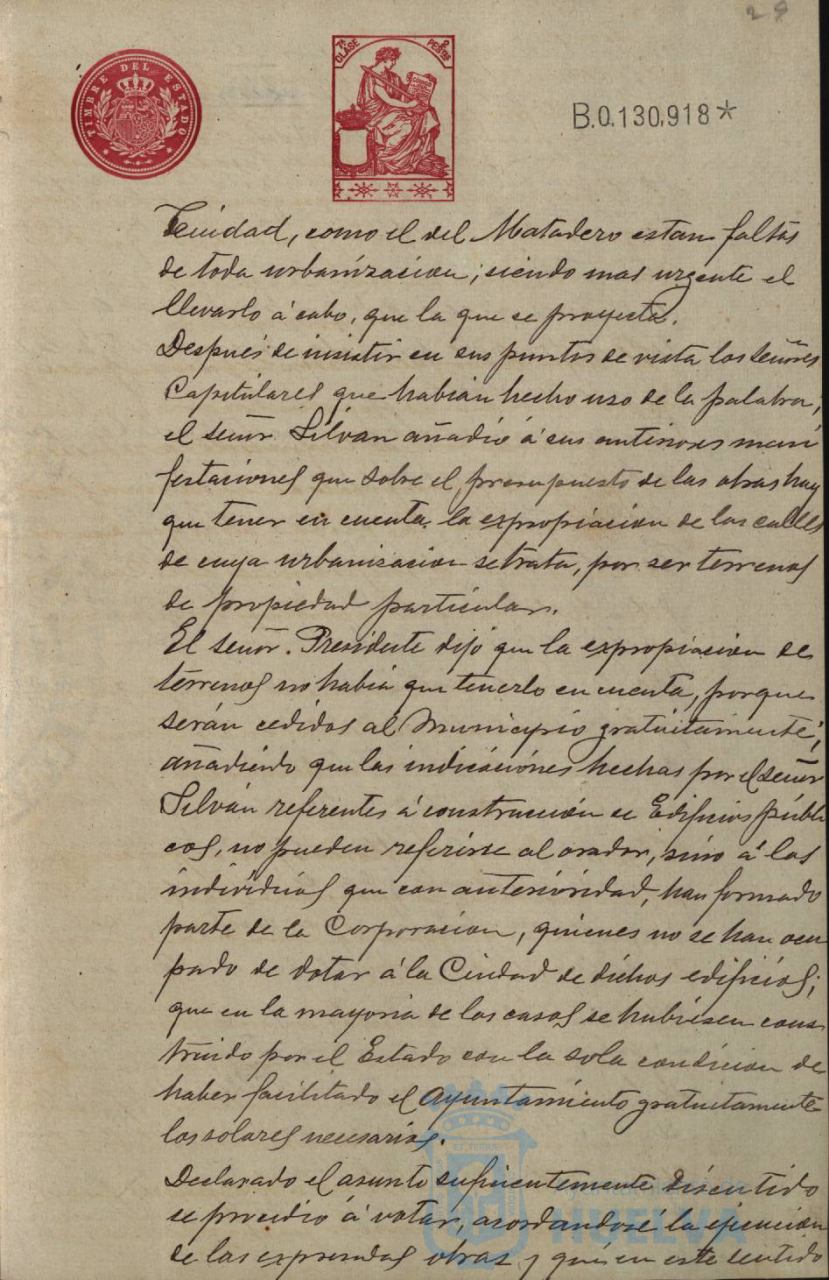 29
TIMBRE DEL ESTADO
7ª CLASE
2 PESETAS
B.0.130,918*
como el del Matadero estan faltos
de toda urbanizacion; siendo mas urgente el
llevarlo á cabo, que la que se proyecta.
Despues de insistir en sus puntos de vista los señores
Capitulares que habian hecho uso de la palabra,
el señor Silvan añadió á sus anteriores mani
festaciones que sobre el presupuesto de las obras hay
que tener en cuenta la expropiacion de las calles
de cuya urbanizacion se trata, por ser terrenos
de propiedad particular.
El señor Presidente dijo que la expropiacion de
terrenos no habia que tenerlo en cuenta, porque
serán cedidos al Municipio gratuitamente,
añadiendo que las indicaciones hechas por el señor
Silván referentes á construcción de Edificios públi
cos, no pueden referirse al orador, sino á los
individuos que con anterioridad, han formado
parte de la Corporacion, quienes no se han ocu
pado de dotar á la Ciudad de dichos edificios;
que en la mayoria de los casos se hubiesen cons
truido por el Estado con la sola condicion de
haber facilitado el Ayuntamiento gratuitamente
los solares necesarios.
Declarado el asunto suficientemente discutido
se procedió á votar, acordandose la ejecucion
de las expresadas obras y que en este sentido
HUELVA